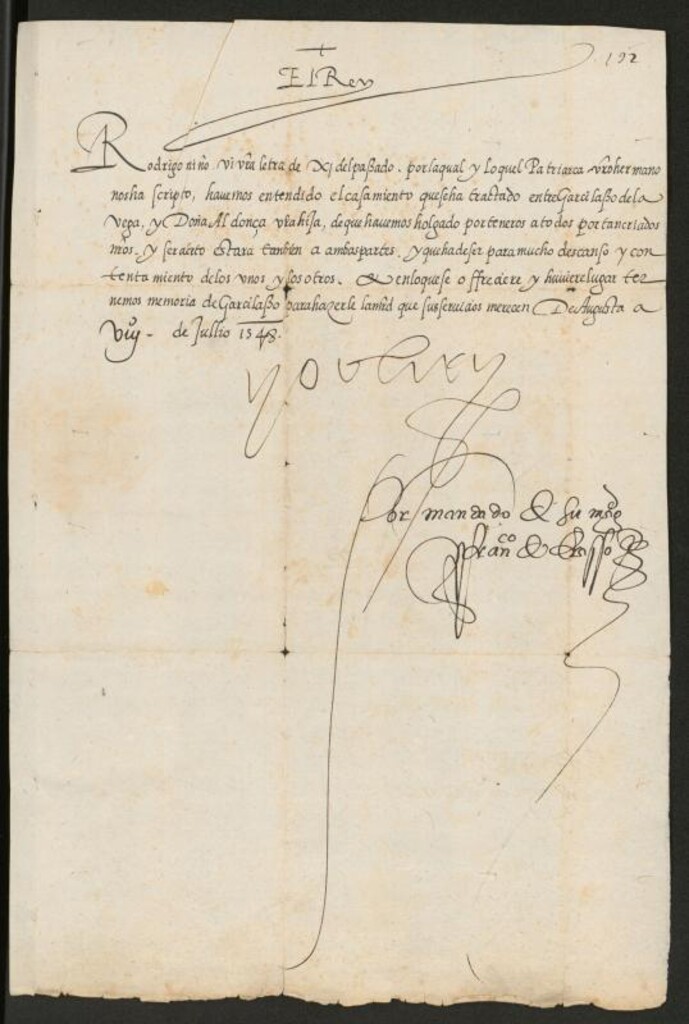 192
El Rey
Rodrigo niño. vi vr̃a letra de XJ del paßado. por laqual y lo quel Patriarca vr̃o hermano
nos ha scripto, havemos entendido el casamiento que se ha tractado entre Garcilaßo de la
Vega, y Doña Aldonça vr̃a hija, de que havemos holgado por teneros a todos por tan criados
nr̃os. y ser a ẽsto Estara tambien a ambas partes. y que ha de ser para mucho descanso y con
tentamiento delos vnos y los otros. & en lo que se offreciere y huuiere lugar ter
nemos memoria de Garcilaßo para hazerle la mr̃d que sus seruicios merecen De Augusta a
viij - de Jullio 1548.
yo el rey
Por mandado de su mag.
Fran.co de Erasso